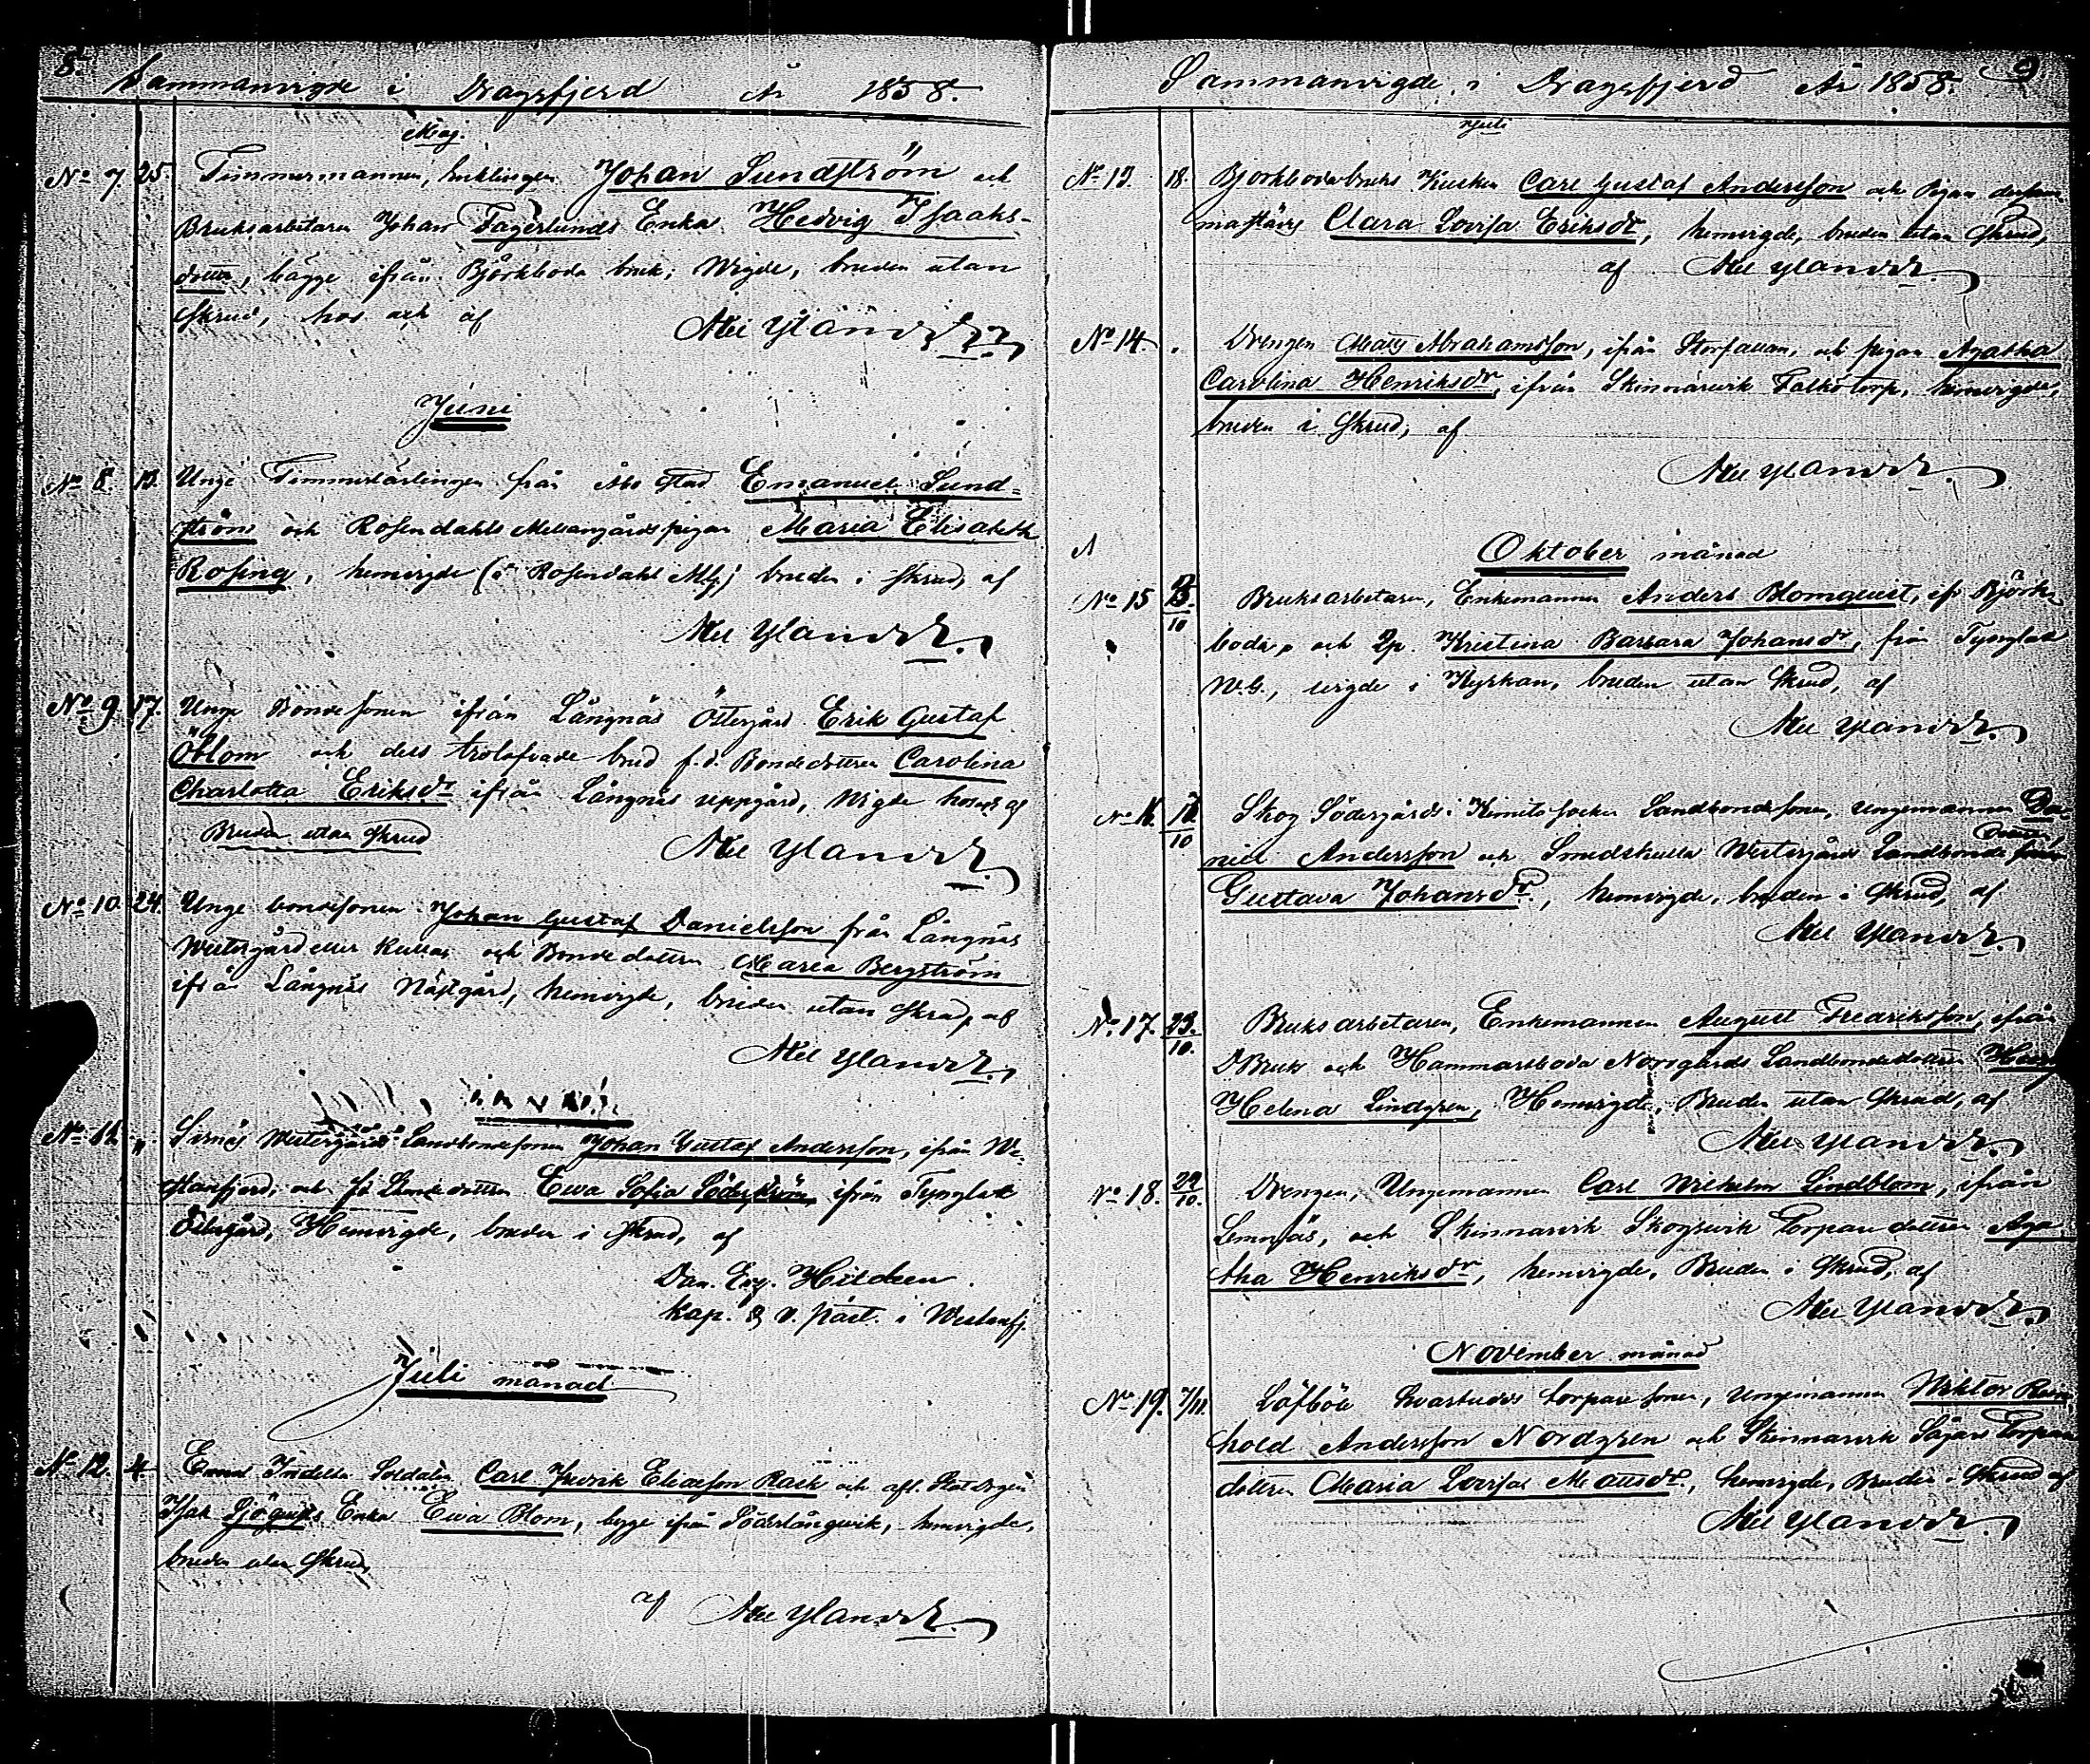 8.
Sammanvigde i Dragsfjerd År 1858.
Maj.
No 7. 25. Timmermannen, Enklingen Johan Sundström och
Bruksarbetaren Johan Fagerlunds Enka Hedvig Isaaks-
dotter, bägge ifrån Björkboda bruk; Wigde, bruden utan
skrud, hos och af
Axel Ylander
Juni
No 8. 13. Unge Timmerlärlingen från Åbo stad Emanuel Sund=
ström och Rosendahls Mellangårds pigan Maria Elisabeth
Rosing, hemvigde (i Rosendahl Mlg) bruden i skrud, af
Axel Ylander.
No 9. 17. Unge Bondesonen ifrån Långnäs Östergård Erik Gustaf
Öblom och dess trolofvade brud f.d. Bondedottren Carolina
Charlotta Eriksdr ifrån Långnäs uppgård, Wigde hos och af
Bruden utan skrud
Axel Ylander
No 10. 24. Unge bondesonen Johan Gustaf Danielsson från Långnäs
Westergård eller Kullas och Bondedottren Maria Bergström
ifrån Långnäs Nästgård, hemvigde, bruden utan skrud, af
Axel Ylander.
No 11. " Westergårds Landbondesonen Johan Gustaf Andersson, ifrån We-
stanfjerd, och fd dottren Ewa Sofia Söderström ifrån Tynglax
Östergård, Hemvigde, bruden i skrud, af
Dan. Eng. Hildeen.
Kap. & v. past. i Westanfj.
Juli månad
No 12. 4. Indelta Soldaten Carl Fredrik Eliasson Rask och afl. Statdrgen
Isak Sjöqvists Enka Ewa Blom, begge ifrån Söderlångvik, hemvigde,
bruden utan skrud,
af Axel Ylander.
Sammanvigde i Dragsfjerd År 1858. 9
Juli
No 13. 18. Björkboda bruks Kusken Carl Gustaf Andersson och Pigan
Clara Lovisa Eriksdr, hemvigde, bruden utan skrud,
af Axel Ylander
No 14. Drengen Mats Abrahamsson, ifrån Storfallan, och pigan Agatha
Carolina Henriksdr, ifrån Skinnarvik Falkö torp, hemvigde,
bruden i skrud, af
Axel Ylander.
Oktober månad
No 15 10 Bruksarbetaren, Enkemannen Anders Blomqvist, ifr Björk-
boda, och Qp. Kristina Barbara Johansdr, från Tynglax
W.G., wigde i Kyrkan, bruden utan skrud, af
Axel Ylander.
No 16. 10 Skog Södergårds i Kimito socken Landbondesonen, ungemannen Da-
niel Andersson och Smedskulla Westergårds Landbonde
dottren
Gustava Johansdr., hemvigde, bruden i skrud, af
Axel Ylander.
No 17. 23./10. Bruksarbetaren, Enkemannen August Fredriksson, ifrån
D Bruk och Hammarsboda Norrgårds Landbondedottren
Helena Lindgren, Hemvigde, Bruden utan skrud, af
Axel Ylander.
No 18. 22/10. Drengen, Ungemannen Carl Wilhelm Lindblom, ifrån
Lemnäs, och Skinnarvik Skogsvik Torpare dottren Aga-
tha Henriksdr, hemvigde, Bruden i skrud, af
Axel Ylander.
November månad
No 19. 7/11. Löfböle torpare sonen, ungemannen Wiktor Rein-
hold Andersson Nordgren och Skinnarvik Torpare
dottren Maria Lovisa Mattsdr., hemvigde, Bruden i skrud af
Axel Ylander.